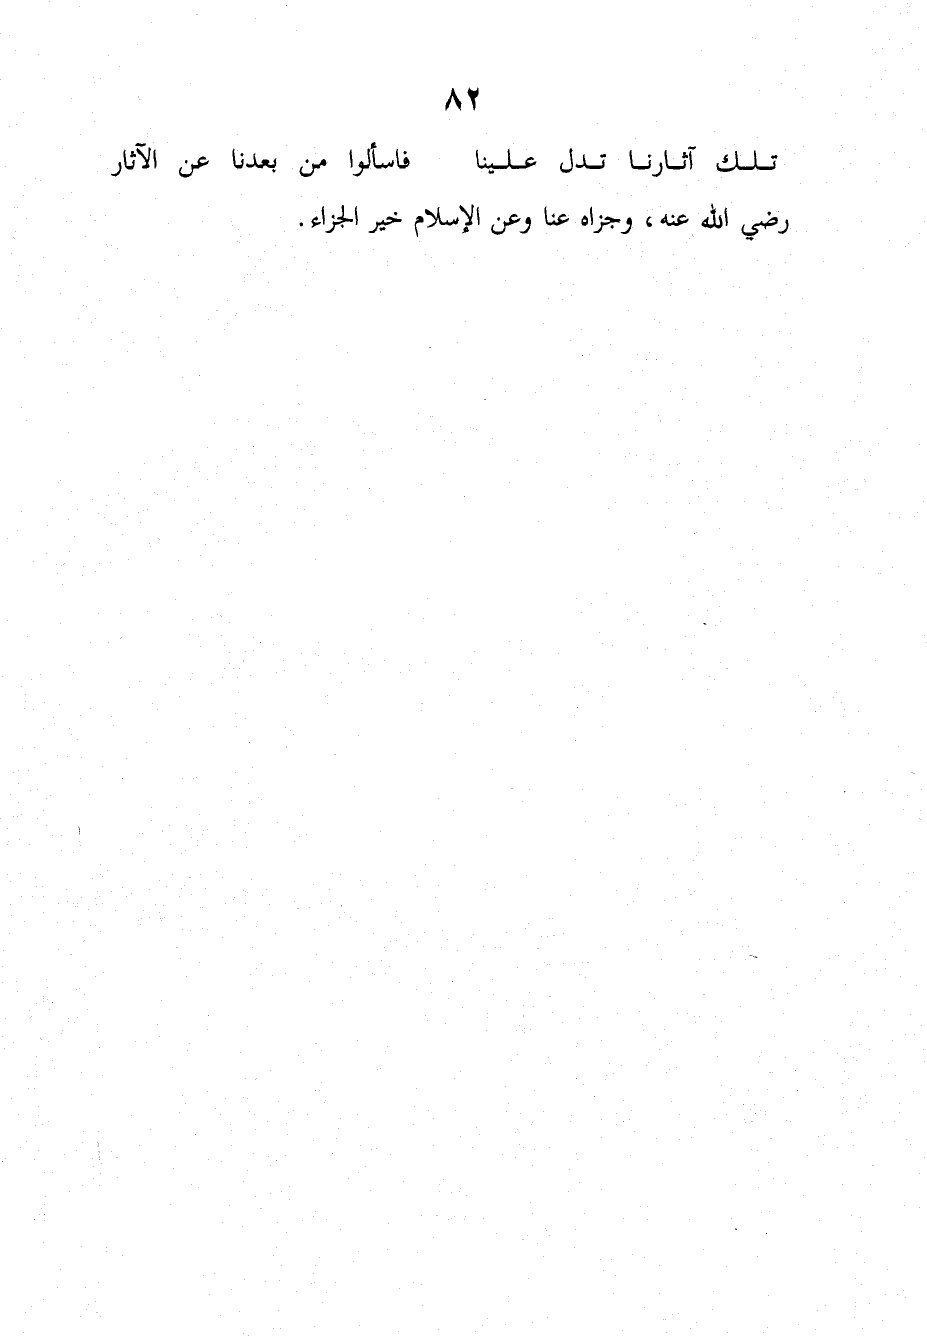 ٨٢
تلك آثارنا تدل علينا فاسألوا من بعدنا عن الآثار
رضي الله عنه ، وجزاه عنا وعن الإسلام خير الجزاء .